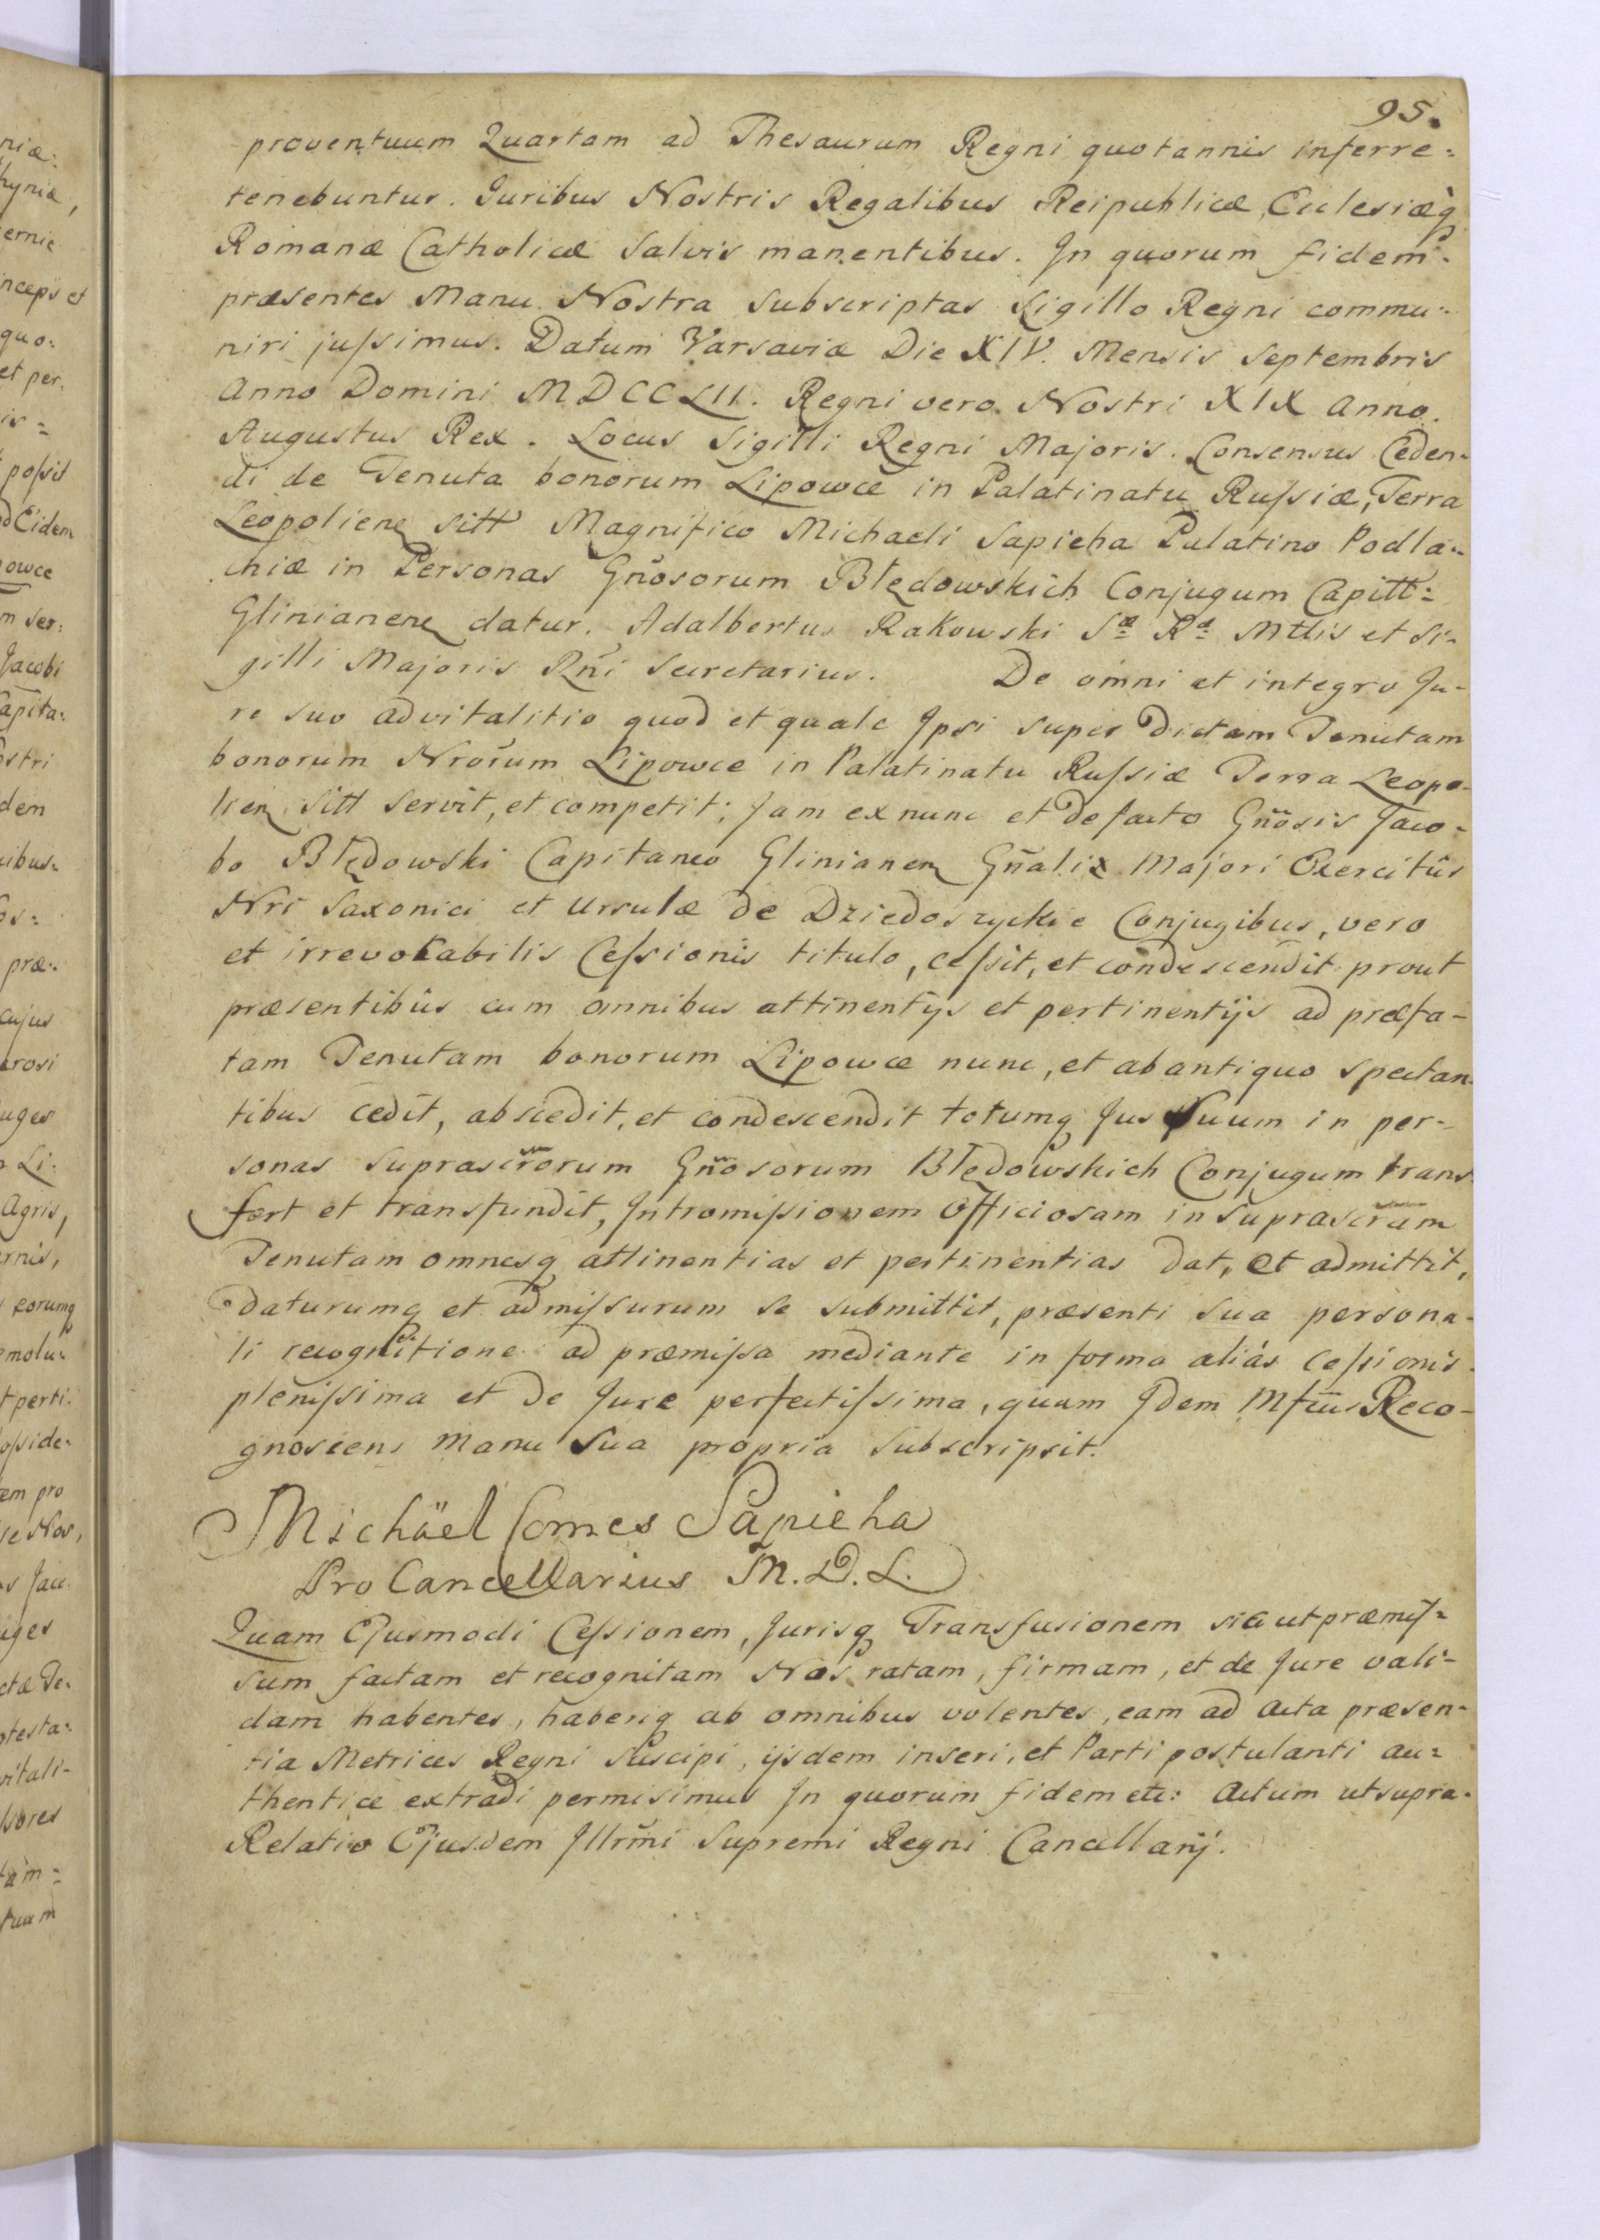 95.
proventuum Quartam ad Thesaurum Regni quotannis inferre=
tenebuntur. Juribus Nostris Regalibus Reipublicæ, Ecclesiæq
Romanæ Catholicæ salvis manentibus. In quorum fidem
præsentes Manu Nostra subscriptas Sigillo Regni commu-
niri jussimus. Datum Varsaviæ Die XIV. Mensis Septembris
Anno Domini MDCCLII. Regni vero Nostri XIX Anno.
Augustus Rex. Locus Sigilli Regni Majoris. Consensus Ceden-
di de Tenuta bonorum Lipowce in Palatinatu Russiæ, Terra
Leopolien sitt Magnifico Michaeli Sapieha Palatino Podla-
chiæ in Personas Gñosorum Błędowskich Conjugum Capitt=
Glinianen datur. Adalbertus Rakowski Sæ Ræ Mttis et Si-
gilli Majoris Rñi Secretarius. De omni et integro Ju-
re suo advitalitio quod et quale Ipsi super dictam Tenutam
bonorum Nrorum Lipowce in Palatinatu Russiæ Terra Leopo-
lien sitt servit, et competit; Jam ex nunc et de facto Gñosis Jaco-
bo Błędowski Capitaneo Glinianen Gñali Majori Exercitûs
Nri Saxonici et Ursulæ de Dziedoszyckie Conjugibus, vero
et irrevocabilis Cessionis titulo, cessit, et condescendit prout
præsentibus cum omnibus attinentijs et pertinentijs ad præfa-
tam Tenutam bonorum Lipowce nunc, et ab antiquo spectan-
tibus cedit, abscedit, et condescendit totumq Jus Suum in per-
sonas suprascrorum Gñosorum Błędowskich Conjugum trans-
fert et transfundit, Intromissionem officiosam in suprascram
Tenutam omnesq attinentias et pertinentias dat, et admittit,
daturumq et admissurum se submittit, præsenti sua persona-
li recognitione ad præmissa mediante in forma aliàs Cessionis
plenissima et de Jure perfectissima, quam Idem Mfcus Reco-
gnoscens Manu Sua propria subscripsit.
Michäel Comes Sapieha
ProCancellarius M.D.L.
Quam Ejusmodi Cessionem, Jurisq Transfusionem sic ut præmis-
sum factam et recognitam Nos ratam, firmam, et de Jure vali-
dam habentes, haberiq ab omnibus volentes, eam ad Acta præsen-
tia Metrices Regni suscipi, ijsdem inseri, et Parti postulanti au=
thentice extradi permisimus In quorum fidem etc: Actum ut supra.
Relatio Ejusdem Illrmi Supremi Regni Cancellarij.